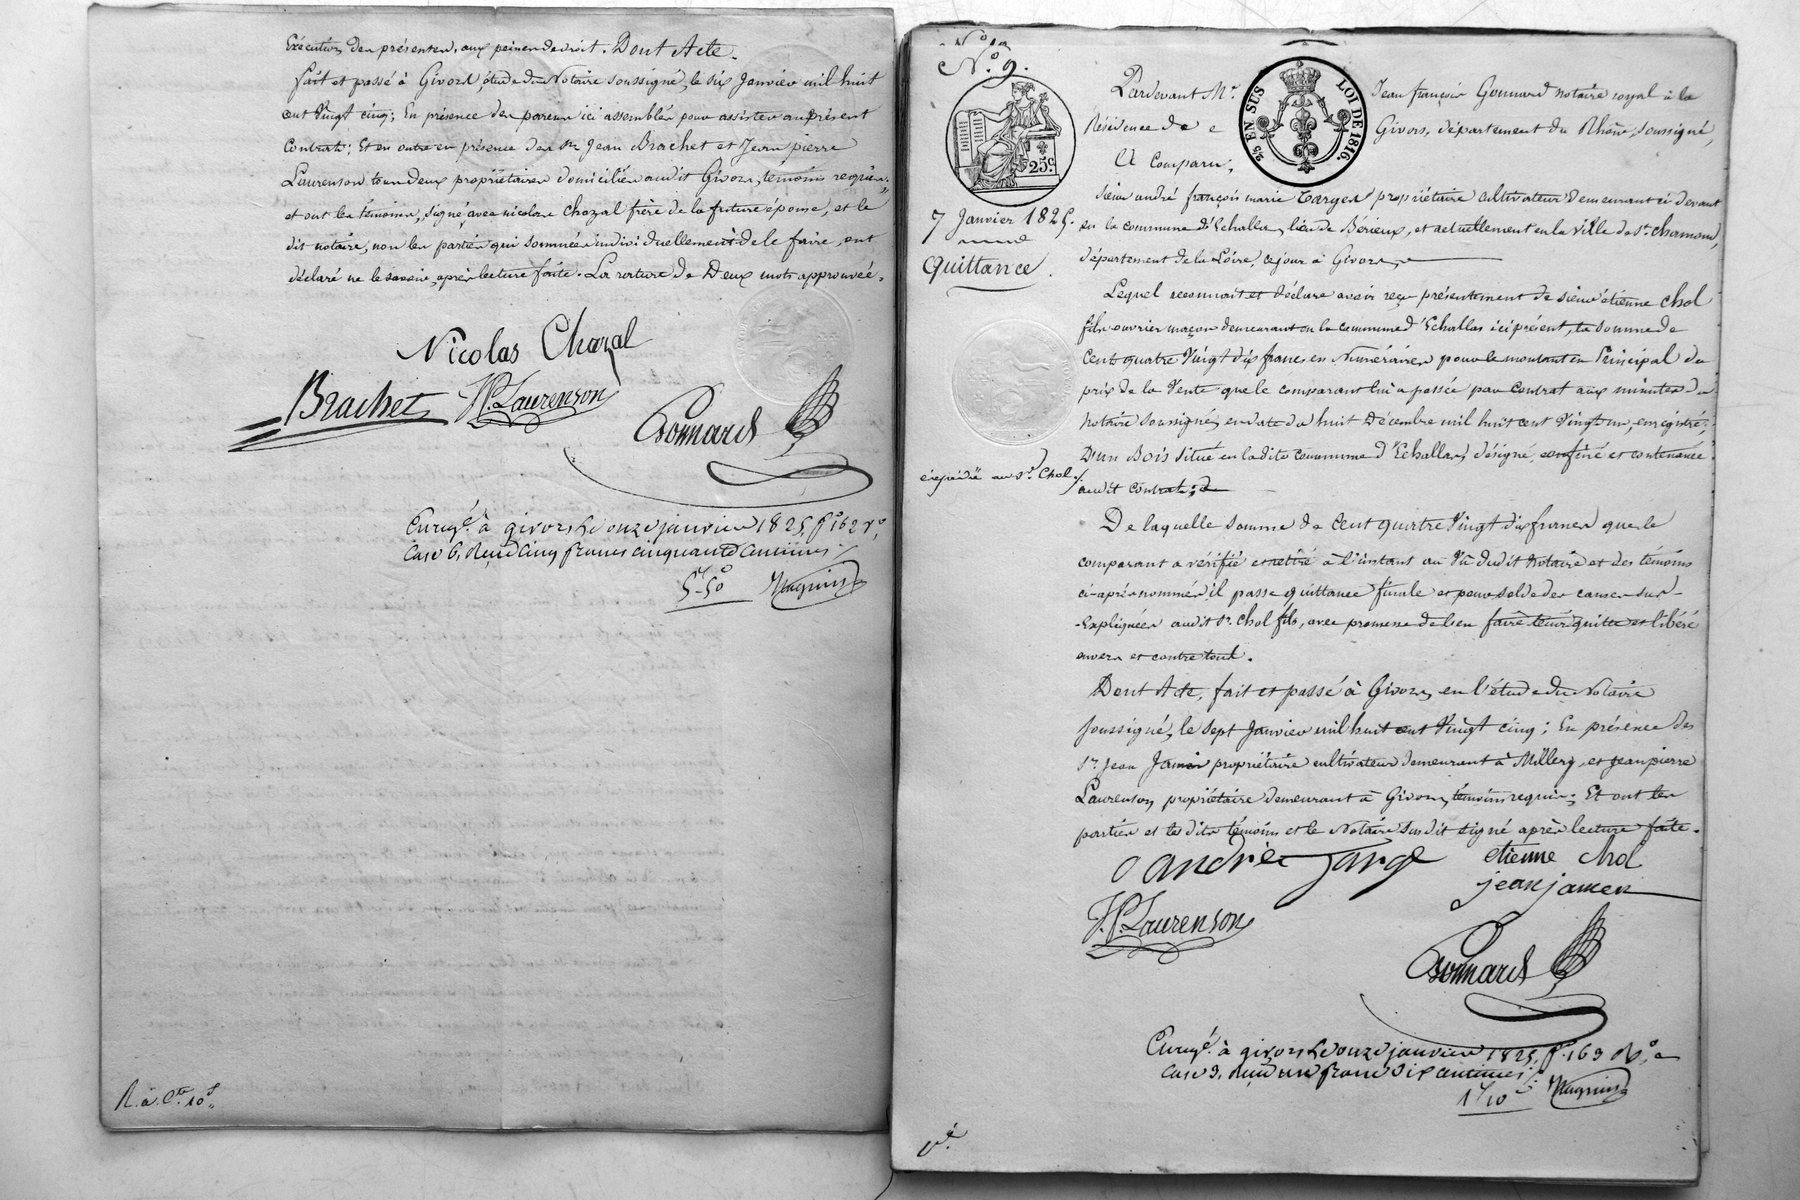 Exécution des présentes, aux peines de droit. Dont Acte.
fait et passé à Givors, étude du Notaire soussigné, le six Janvier mil huit
cent Vingt cinq; En présence des parens ici assemblés pour assister au présent
Contrat; Et en outre en présence des Srs Jean Brachet et Jean pierre
Laurenson tous deux propriétaires domiciliés audit Givors, témoins requis,
et ont les témoins, signé avec nicolas Chazal frère de la future épouse, et le
dit notaire, non les parties qui sommées individuellement de le faire, ont
déclaré ne le savoir, après lecture faite. La rature de Deux mots approuvée.
Nicolas Chazal
Brachet JP. Laurenson
Gonnard
Enregé. à givors le onze janvier 1825, fo 162 ro,
Case 6, Reçu Cinq francs cinquante Centimes
5f 50c
R. à Cte. 10f
No. 9.
25c.
25 EN SUS
LOI DE 1816.
7 Janvier 1825.
Quittance.
expédié au Sr. Chol
Pardevant Me. Jean françois Gonnard notaire royal à la
Résidence de Givors, département du Rhône, soussigné,
A Comparu;
Sieur andré françois marie Targe, propriétaire cultivateur demeurant ci devant
en la commune d'Echallas, lieu de Bérieux, et actuellement en la ville de St. chamond,
département de la Loire, ce jour à Givors,
Lequel reconnait et déclare avoir reçu présentement de sieur étienne Chol
fils ouvrier maçon demeurant en la commune d'Echallas ici présent, la somme de
Cent quatre Vingt dix francs en Numéraire, pour le montant en Principal du
prix de la Vente que le comparant lui a passée par contrat aux minutes du
Notaire soussigné, en date du huit Décembre mil huit cent Vingt un, enregistré;
D'un Bois situé en ladite commune d'Echallas, désigné, confiné et contenancé
audit contrat;
De laquelle somme de Cent quatre Vingt dix francs que le
comparant a vérifié et retiré à l'instant au Vu dudit Notaire et des témoins
ci-après nommés il passe quittance finale et pour solde des causes sus-
-Expliquées audit Sr. Chol fils, avec promesse de l'en faire tenir quitte et libéré
envers et contre tous.
Dont Acte, fait et passé à Givors, en l'étude du Notaire
soussigné, le sept Janvier mil huit cent Vingt cinq; En présence des
Srs. Jean Jamen propriétaire cultivateur demeurant à Millery, et jean pierre
Laurenson, propriétaire demeurant à Givors, témoins requis; Et ont les
parties et les dits témoins et le Notaire susdit signé après lecture faite.
andrée Targe étienne chol
jean jamen
J.P. Laurenson
Gonnard
Enregé. à givors le onze janvier 1825, fo. 163 Ro,
Case 3, Reçu un franc dix centimes
1f 10c